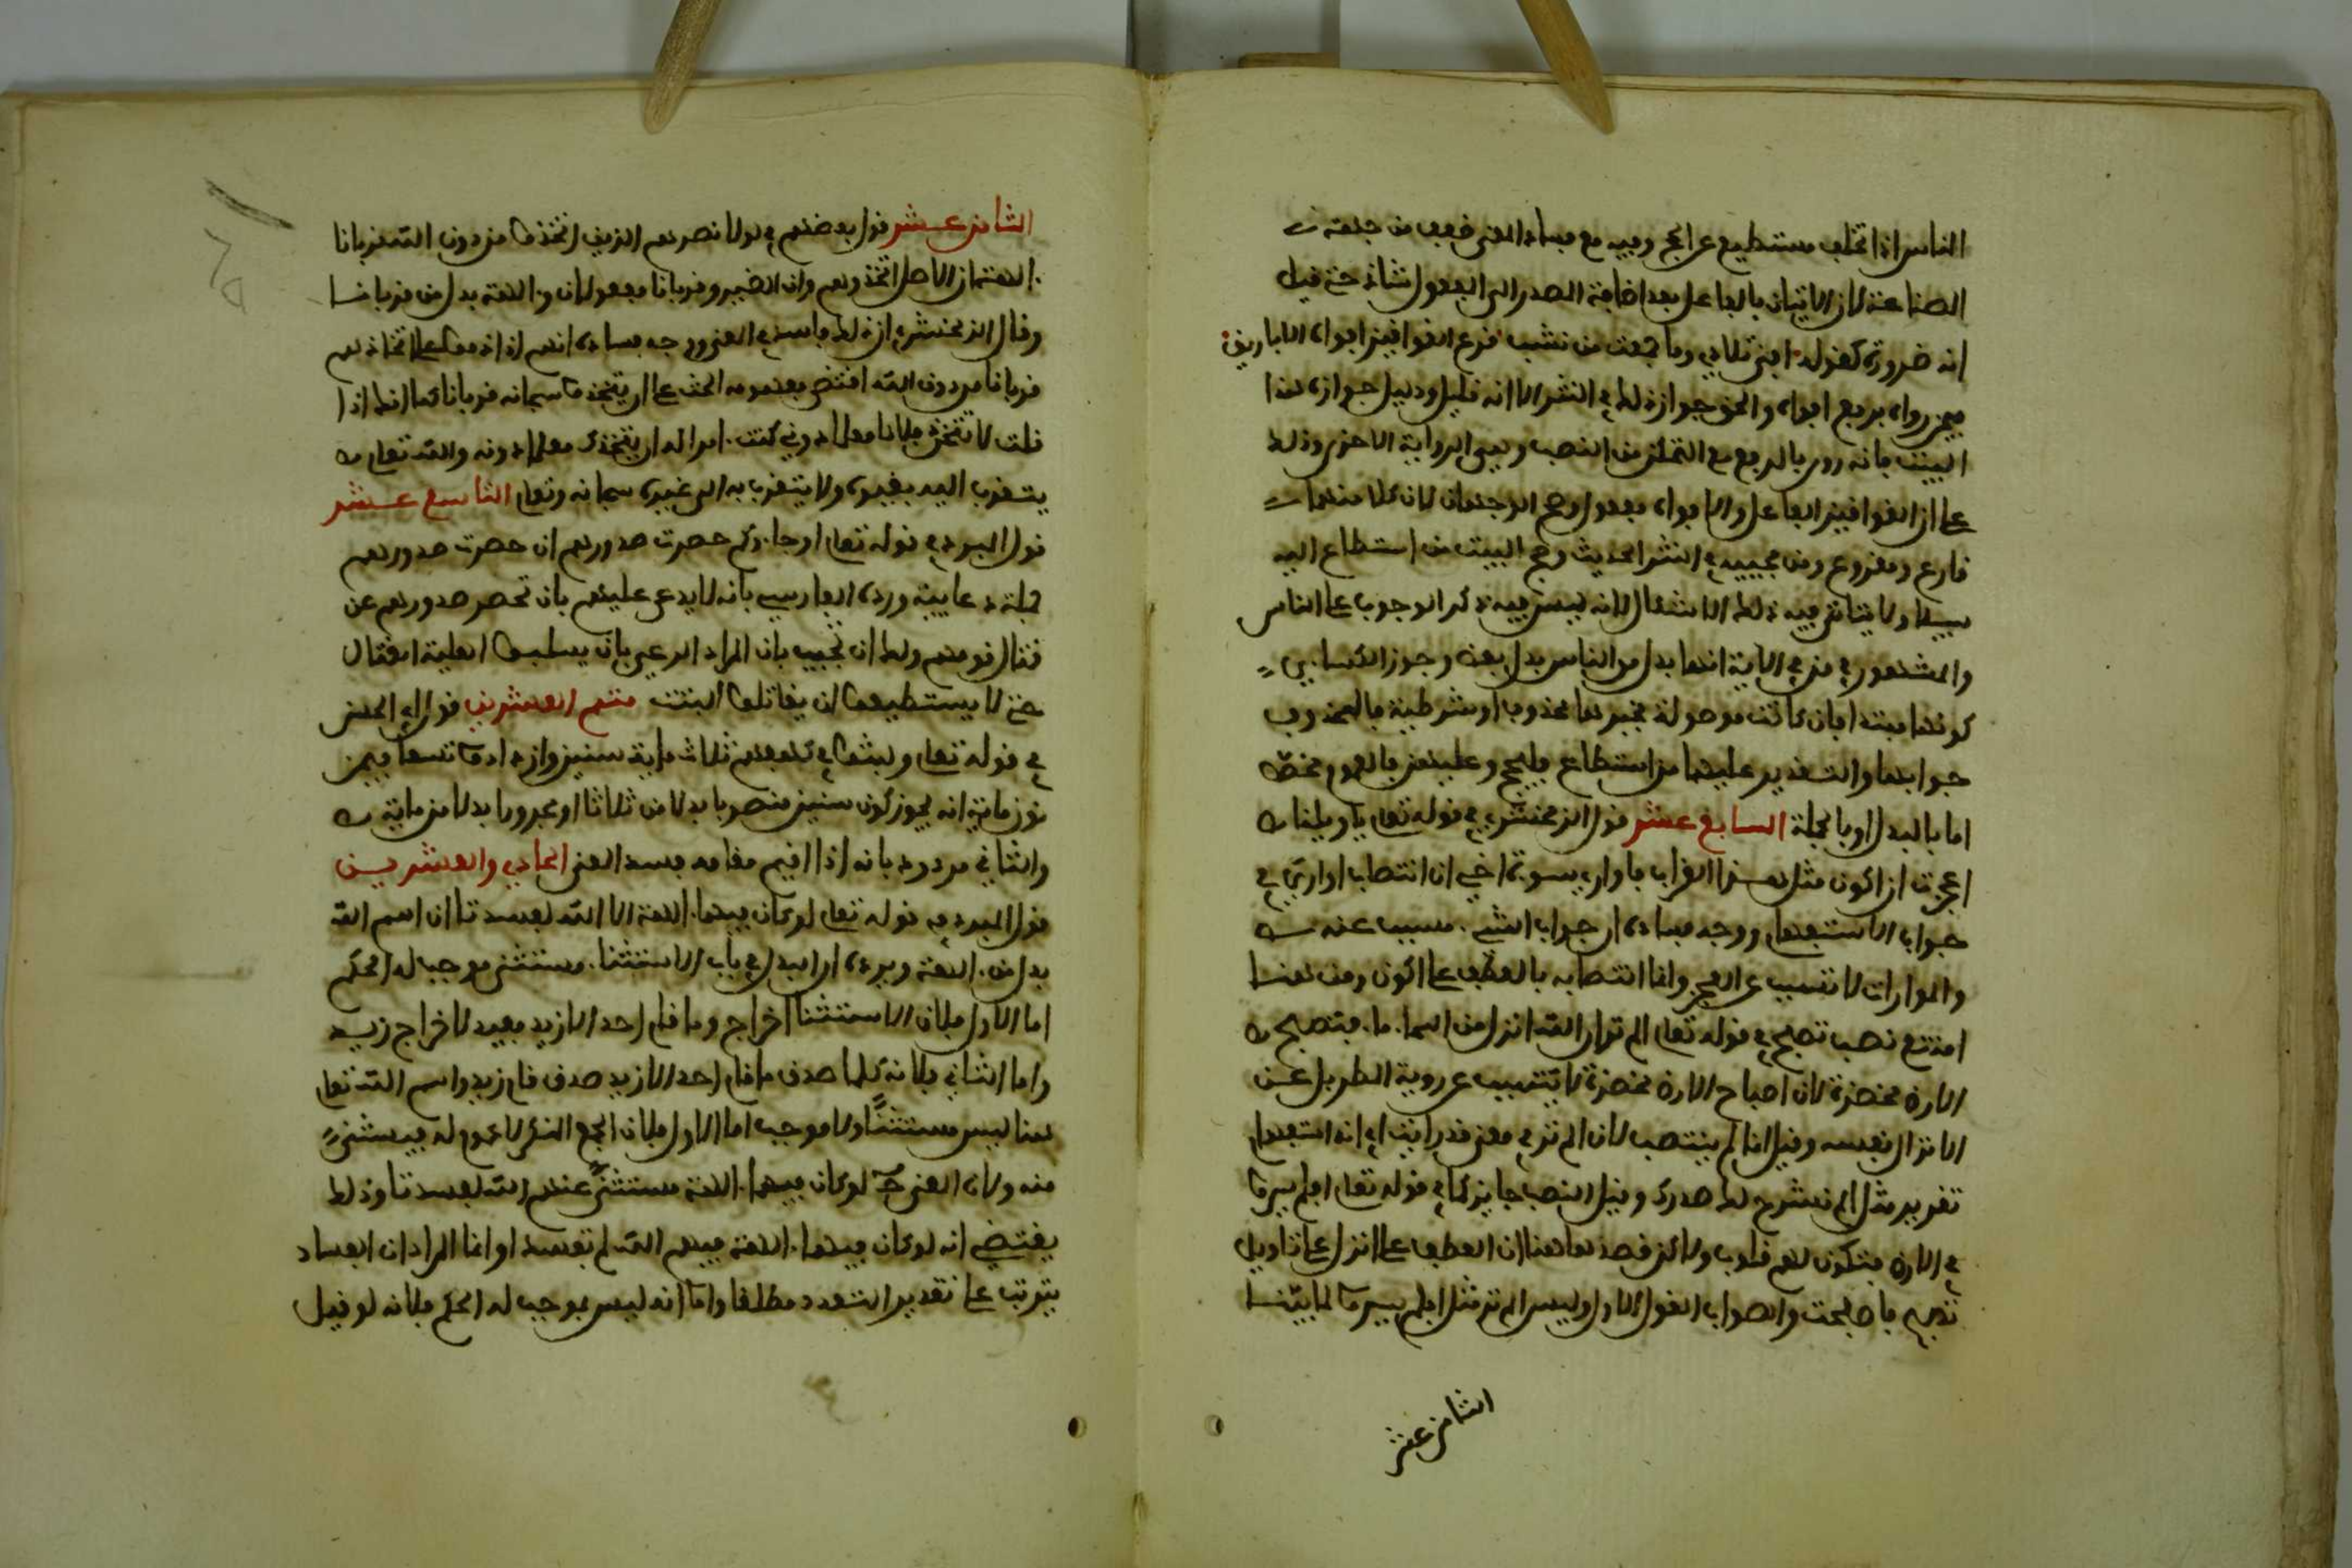 الناس اذا تخلف مستطيع عن الحج وفيه مع فساد المعنى ضعف من جهة
الصناعة لان الاتيان بالفاعل بعد اضافة المصدر الى المفعول شاذ حتى قيل
انه ضرورة كقوله افنى تلادي وما جمعت من نشب قرع القواقيز افواه الاباريق
فيمن رواه برفع افواه والحق جواز ذلك في النثر الا انه قليل ودليل جوازه هذا
البيت فانه روي بالرفع مع التمكن من النصب وهي الرواية الاخرى وذلك
على ان القواقيز الفاعل والافواه مفعول وصح الوجهان لان كلا منهما
قارع ومقروع ومن مجيئه في النثر الحديث وحج البيت من استطاع اليه
سبيلا ولا يتاتى فيه ذلك الاشكال لانه ليس فيه ذكر الوجوب على الناس
والمشهور في من في الاية انها بدل من الناس بدل بعض وجوز الكسائي
كونها مبتدا فان كانت موصولة فخبرها محذوف او شرطية فالمحذوف
جوابها والتقدير عليهما من استطاع فليحج وعليهن فالعموم مخصص
اما بالبدل او بالجملة السابع عشر قول الزمخشري في قوله تعلى يا ويلتا
اعجزت ان اكون مثل هذا الغراب فاواري سوءة اخي ان انتصاب اواري في
جواب الاستفهام ووجه فساده ان جواب الشيء مسبب عنه
والموارات لا تتسبب عن العجز وانما انتصابه بالعطف على اكون ومن هنا
امتنع نصب تصبح في قوله تعلى الم تر ان الله انزل من السماء ماء فتصبح
الارض مخضرة لان اصباح الارض مخضرة لا يتسبب عن روية المطر بل عن
الانزال نفسه وقيل انما لم ينتصب لان الم تر في معنى قد رايت اي انه استفهام
تقرير مثل الم نشرح لك صدرك وقيل النصب جايز كما في قوله تعلى افلم يسيروا
في الارض فتكون لهم قلوب ولاكن قصد هاهنا ان العطف على انزل على تاويل
تصبح باصبحت والصواب القول الاول وليس الم تر مثل افلم يسيروا لما بيّنا
الثامن عشر
الثامن عشر قول بعضهم في لولا نصرهم الذين اتخذوا من دون الله قربانا
الهة ان الاصل اتخذوهم وان الضمير وقربانا مفعولان والهة بدل من قربانا
وقال الزمخشري ان ذلك فاسد في المعنى ووجه فساده انهم اذا ذموا على اتخاذهم
قربانا من دون الله اقتضى مفهومه الحث على ان يتخذوا سبحانه قربانا كما انك اذا
قلت لا تتخذ فلانا معلما دوني كنت امرا له ان يتخذك معلما دونه والله تعلى
يتقرب اليه بغيره ولا يتقرب به الى غيره سبحانه وتعلى التاسع عشر
قول المبرد في قوله تعلى او جاءوكم حصرت صدورهم ان حصرت صدورهم
جملة دعائية ورده الفارسي بانه لا يدعى عليهم بان تحصر صدورهم عن
قتال قومهم ولك ان تجيب بان المراد الدعى بان يسلبوا اهلية القتال
حتى لا يستطيعوا ان يقاتلوا البتت متم العشرين قول ابي الحسن
في قوله تعلى ولبثوا في كهفهم ثلاث ماية سنين وازدادوا تسعا فيمن
نون ماية انه يجوز كون سنين منصوبا بدلا من ثلاثا او مجرورا بدلا من ماية
والثاني مردود بانه اذا اقيم مقامه فسد المعنى الحادي والعشرين
قول المبرد في قوله تعلى لو كان فيهما الهة الا الله لفسدتا ان اسم الله
بدل من الهة ويرده ان البدل في باب الاستثناء مستثنى موجب له الحكم
اما الاول فلان الاستثنا اخراج وما قام احد الا زيد مفيد لاخراج زيد
واما الثاني فلانه كلما صدق ما قام احد الا زيد صدق قام زيد واسم الله تعلى
هنا ليس مستثنًا ولا موجب اما الاول فلان الجمع المنكر لا عموم له فيستثنى
منه ولان المعنى ح لو كان فيهما الهة مستثنى عنهم الله لفسدتا وذلك
يقتضي انه لو كان فيهما الهة فيهم الله لم تفسدا وانما المراد ان الفساد
يترتب على تقدير التعدد مطلقا واما انه ليس بموجب له الحكم فلانه لو قيل